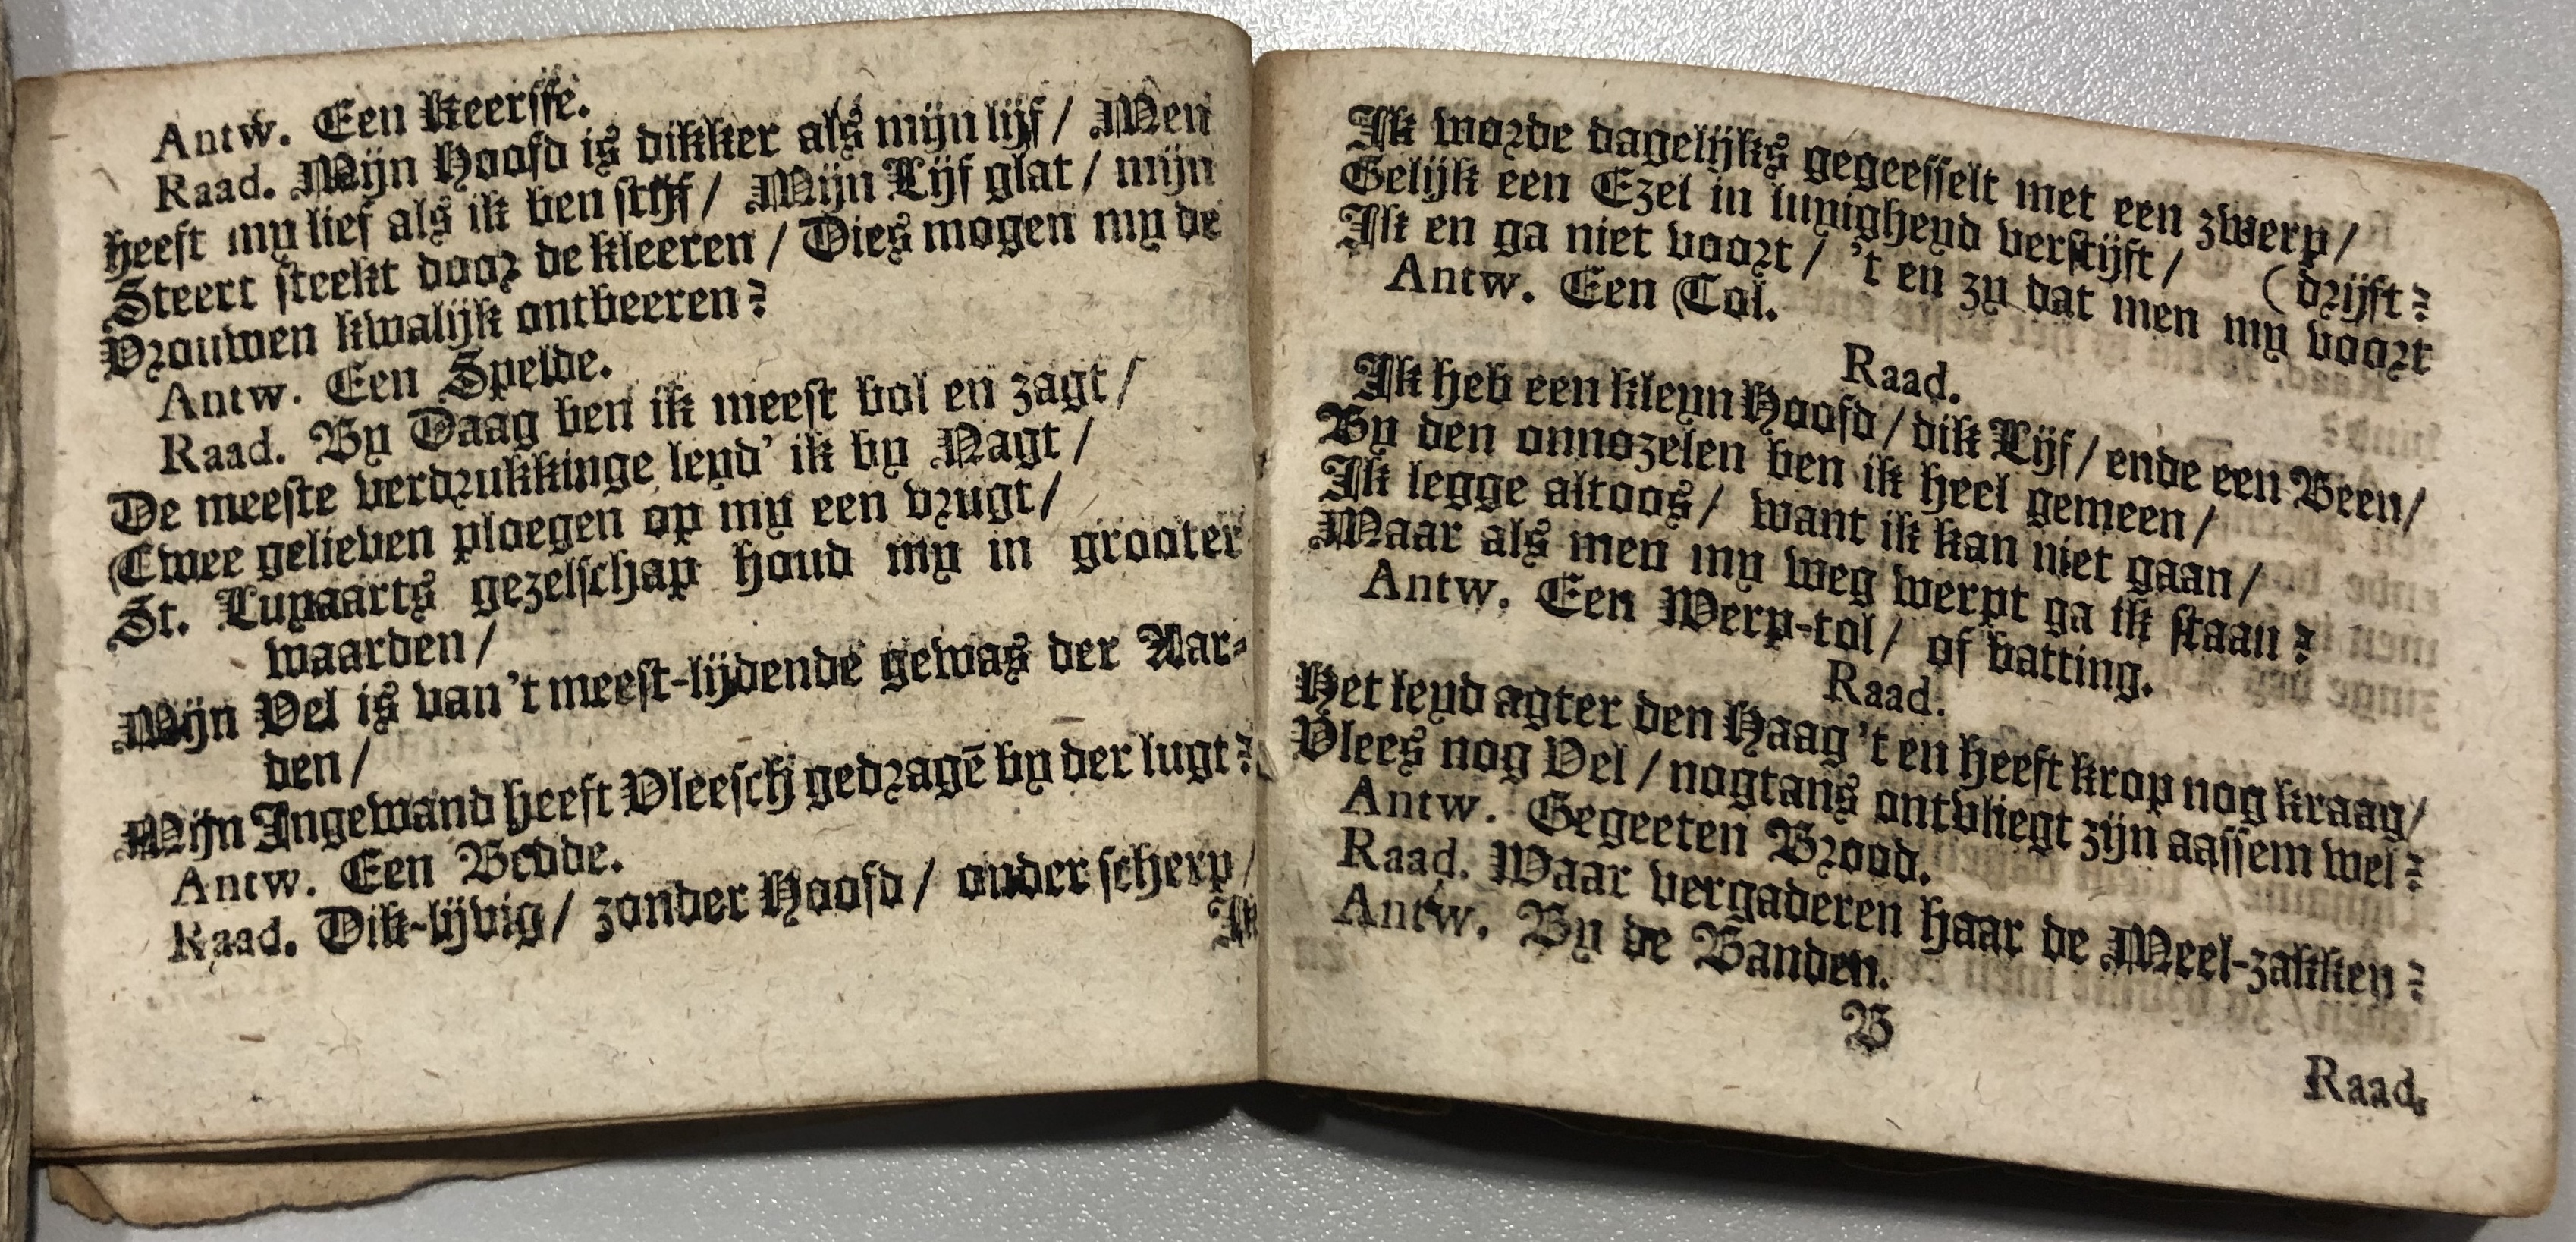 Antw. Een Keersse.
Raad. Mijn Hoofd is dikker als mijn lijf / Men
heeft my lief als ik ben stijf / Mijn Lijf glat / mijn
Steert steekt door de kleeren / Dies mogen my de
Vrouwen kwalijk ontbeeren?
Antw. Een Spelde.
Raad. By Daag ben ik meest bol en zagt /
De meeste verdrukkinge leyd' ik by Nagt /
Twee gelieven ploegen op my een vrugt /
St. Luyaarts gezelschap houd my in grooter
waarden /
Mijn Vel is van 't meest-lijdende gewas der Aar-
den /
Mijn Ingewand heeft Vleesch gedragē by der lugt?
Antw. Een Bedde.
Raad. Dik-lijvig / zonder Hoofd / onder scherp /
Ik
Ik worde dagelijks gegeesselt met een zwerp /
Gelijk een Ezel in luyigheyd verstijft / (drijft?
Ik en ga niet voort / 't en zy dat men my voort
Antw. Een Tol.
Raad.
Ik heb een kleyn Hoofd / dik Lijf / ende een Been /
By den onnozelen ben ik heel gemeen /
Ik legge altoos / want ik kan niet gaan /
Maar als men my weg werpt ga ik staan?
Antw. Een Werp-tol / of batting.
Raad.
Het leyd agter den Haag 't en heeft krop nog kraag /
Vlees nog Vel / nogtans ontvliegt zijn aassem wel?
Antw. Gegeeten Brood.
Raad. Waar vergaderen haar de Meel-zakken?
Antw. By de Banden.
B
Raad.